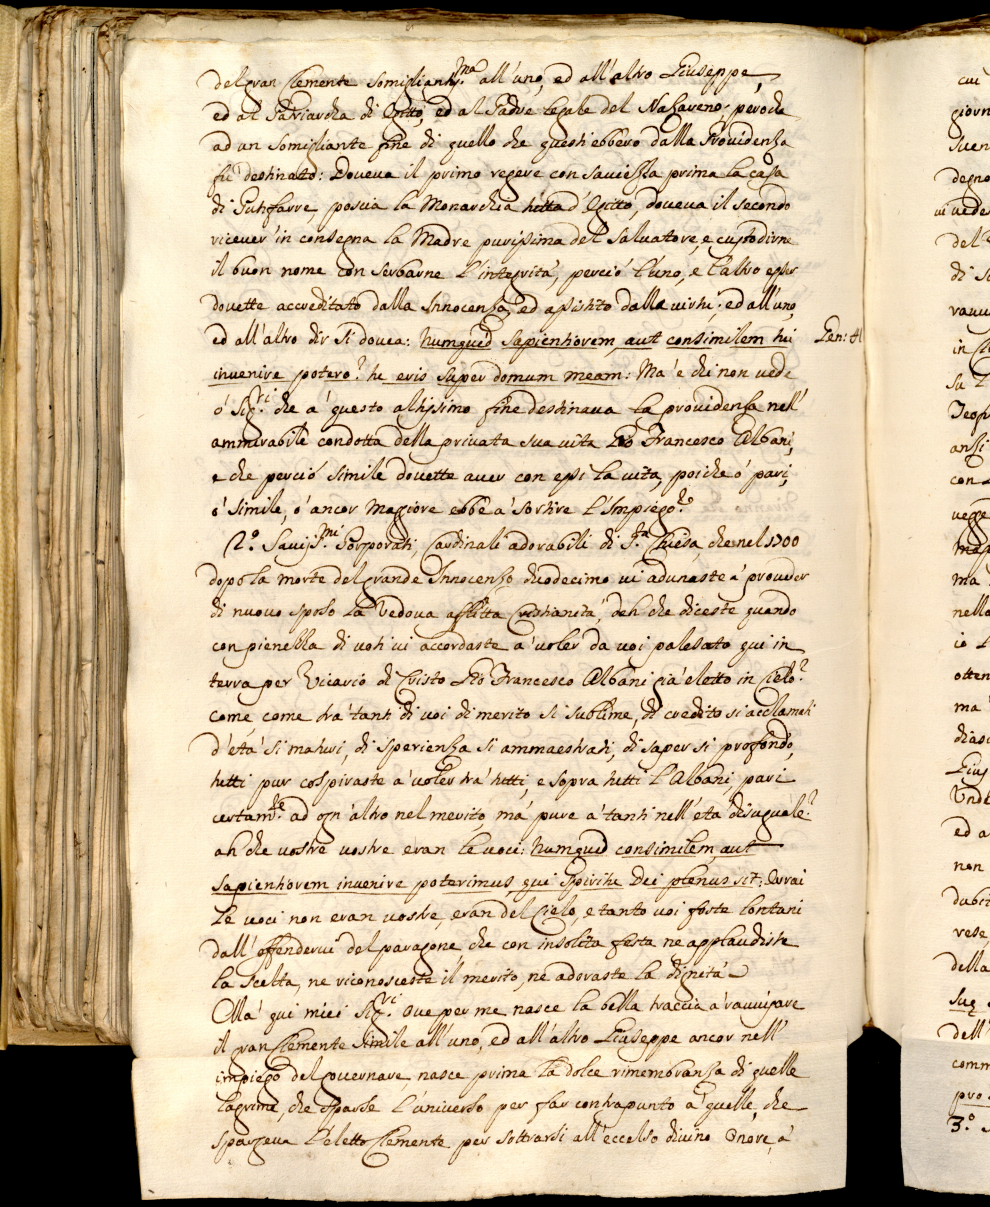 del gran Clemente somigliantis.ma all'uno, ed all'altro Giuseppe,
ed al Patriarcha di Egitto, ed al Padre legale del Nazareno; peroche
ad un somigliante fine di quello che questi ebbero dalla Providenza
fù destinato: Doveva il primo regere con saviezza prima la casa
di Putifarre, poscia la Monarchia tutta d'Egitto, doveva il secondo
ricever' in consegna la Madre purissima del Salvatore, e custodirne
il buon nome con serbarne l'integrità, perciò l'uno, e l'altro esser
dovette accreditato dalla Innocenza, ed assistito dalla virtù; ed all'uno,
ed all'altro dir si dovea: Numquid Sapientiorem, aut consimilem tui
Gen: 41
invenire potero? tu eris super domum meam: Ma' e chi non vede
ò Sig.ri che a' questo altissimo fine destinava la providenza nell'
ammirabile condotta della privata sua vita Gio Francesco Albani,
e che perciò simile dovette aver con essi la vita, poiche ò pari,
ò simile, ò ancor magiore ebbe a' sortire l'Impiego?
2.° Savijs.mi Porporati, Cardinali adorabili di S.ta Chiesa, che nel 1700
dopo la morte del grande Innocenzo duodecimo vi adunaste a' proveder
di nuovo sposo la Vedova afflitta Cristianità, deh che diceste quando
con pienezza di voti vi accordaste a' voler da voi palesato qui in
terra per Vicario di Cristo Gio Francesco Albani già eletto in Cielo?
Come come tra' tanti di voi di merito sì sublime, di credito sì acclamati
d'età sì maturi, di sperienza sì ammaestrati, di saper sì profondo,
tutti pur cospiraste a' voler tra' tutti, e sopra tutti l'Albani, pari
certam.te ad ogn'altro nel merito, mà pure a' tanti nell'età disuguale?
ah che vostre vostre eran le voci: Numquid consimilem, aut
sapientiorem invenire poterimus, qui Spiritu Dei plenus sit:
le voci non eran vostre, eran del Cielo, e tanto voi foste lontani
dall'offendervi del paragone, che con insolita festa ne applaudiste
la scelta, ne riconosceste il merito, ne adoraste la dignità
Mà qui miei Sig.ri ove per me nasce la bella traccia a' ravvisare
il gran Clemente simile all'uno, ed all'altro Giuseppe ancor nell'
impiego del governare nasce prima la dolce rimembranza di quelle
lagrime, che sparse l'universo per far contrapunto a' quelle, che
spargeva l'eletto Clemente per sottrarsi all'eccelso divino Onore, a'
cui
giorn
degno
del
di
in
Su
con
ma
nella
otten
ma
ed a
non
vese,
della
dell'
comm
pro
3.°